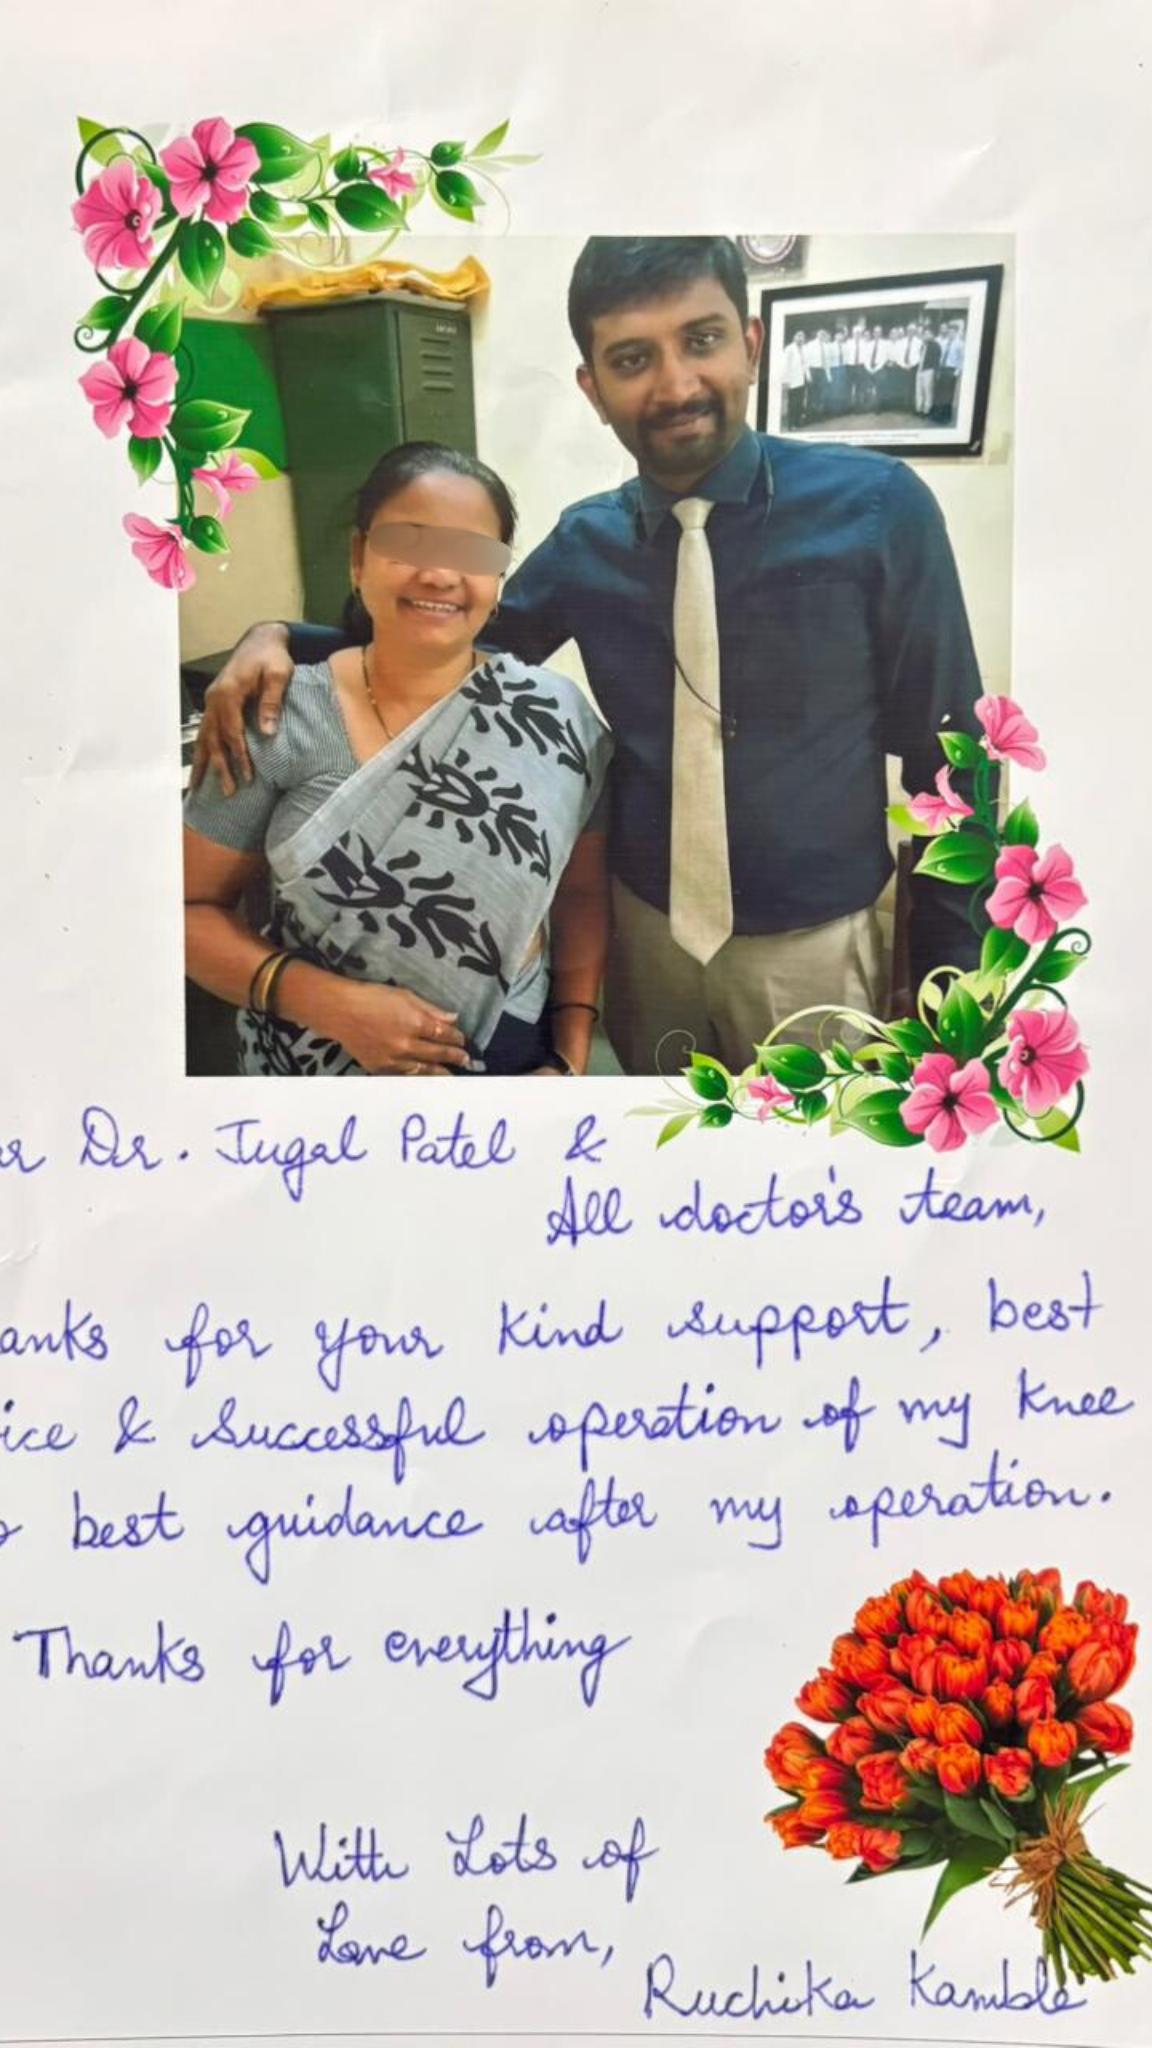 Dr. Jugal Patel &
All doctor's team,
anks for your kind support, best
ice & Successful operation of my knee
best guidance after my operation.
Thanks for everything
With Lots of
Love from,
Ruchika Kamble